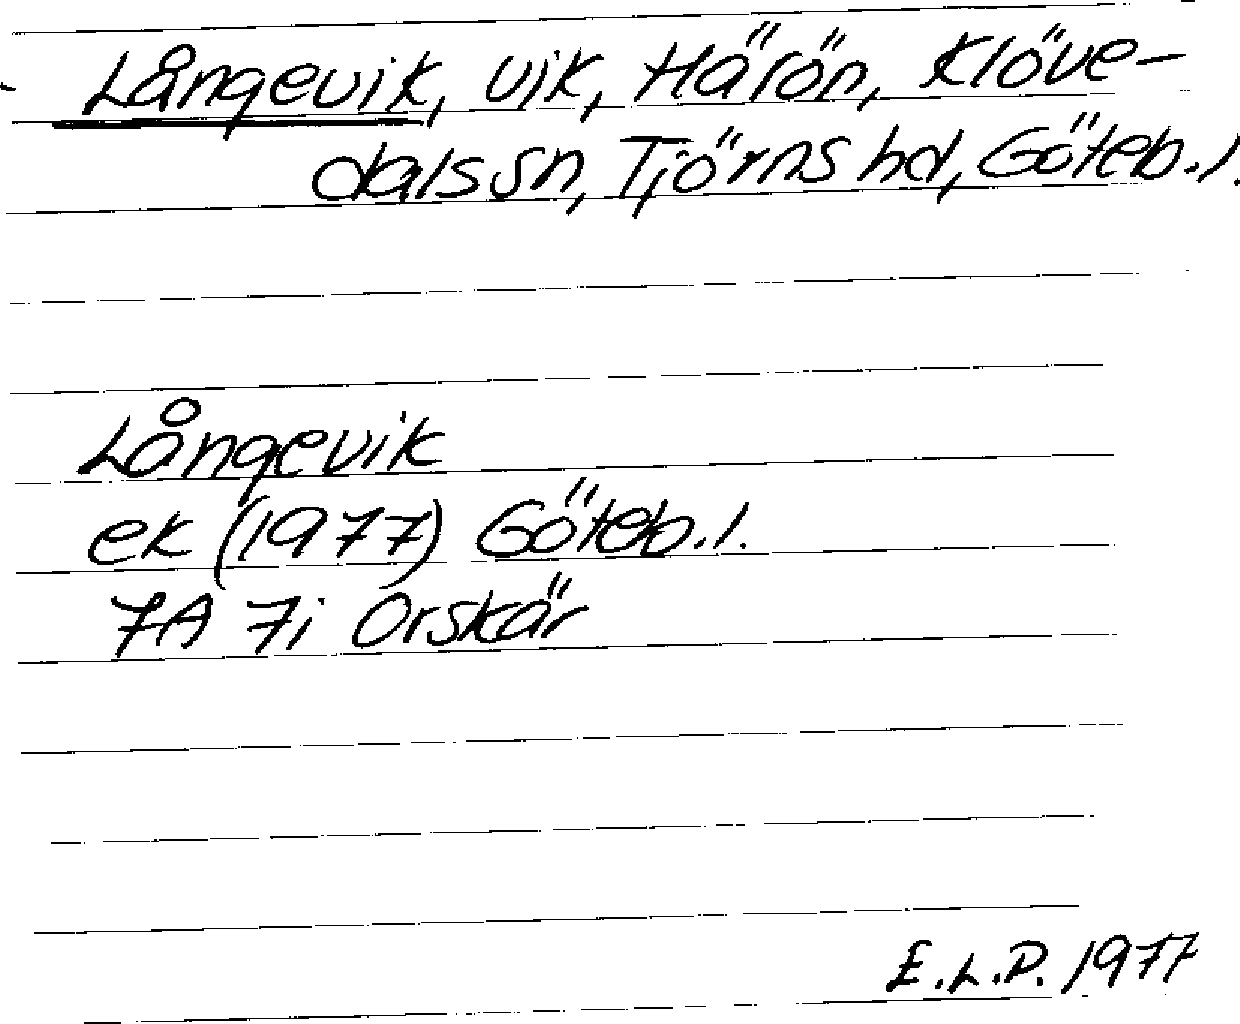 Långevik, vik, Härön, Klöve-
dals sn, Tjörns hd, Göteb. l.
Långevik
ek (1977) Göteb. l.
7A 7i Orskär
E.L.P. 1977